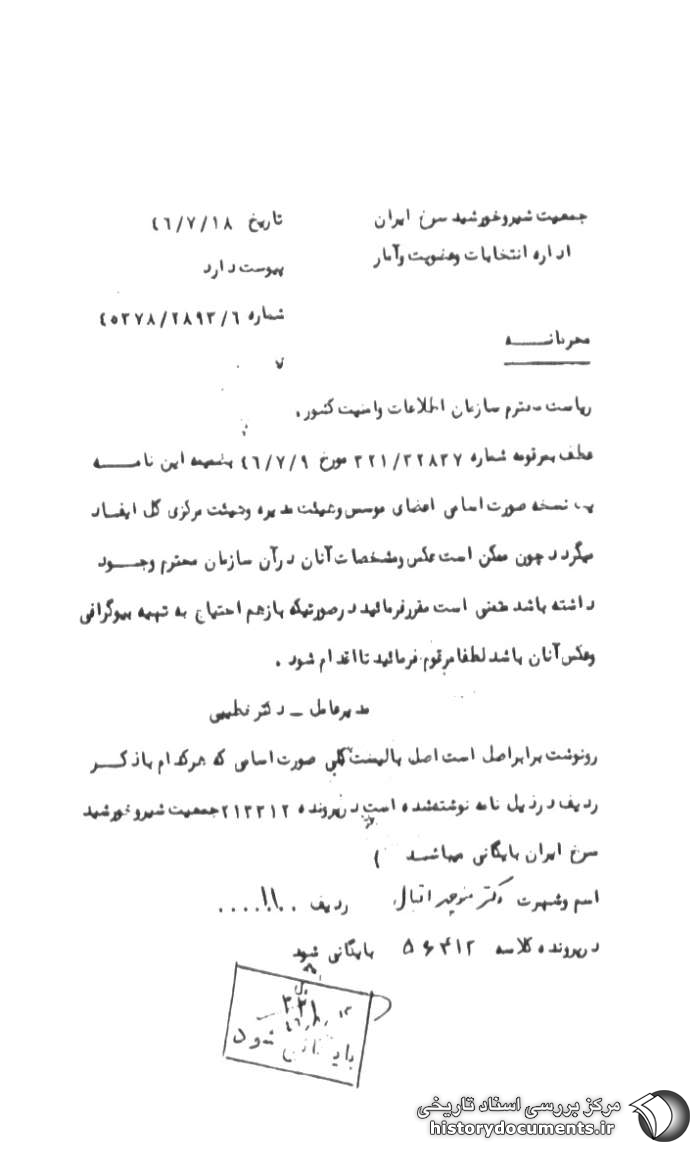 جمعیت شیروخورشید سرخ ایران
تاریخ ٤٦/٧/١٨
اداره انتخابات وعضویت وآمار
پیوست دارد
شماره ٤٥٣٧٨/٢٨٩٣/٦
محرمانـــــه
٧
ریاست محترم سازمان اطلاعات وامنیت کشور.
عطف بمرقومه شماره ٣٢١/٢٢٨٣٧ مورخ ٤٦/٧/٩ بضمیمه این نامـــه
یک نسخه صورت اسامی اعضای موسس وهیئت مدیره وهیئت مرکزی کل ایفـاد
میگردد چون ممکن است عکس ومشخصات آنان درآن سازمان محترم وجـــود
داشته باشد متمنی است مقررفرمائید درصورتیکه بازهم احتیاج به تهیه بیوگرافی
وعکس آنان باشد لطفا مرقوم فرمائید تااقدام شود .
مدیرعامل ـ دکترخطیبی
رونوشت برابراصل است اصل بالیست کلی صورت اسامی که هرکدام باذکـــر
ردیف درذیل نامه نوشته شده است درپرونده ٢١٣٣١٢ جمعیت شیروخورشید
سرخ ایران بایگانی میباشـد (
اسم وشهرت دکتر منوچهر اقبال ردیف ..١١.....
درپرونده کلاسه ٥٦٤١٢ بایگانی شود
٣٣١
بایگانی شود
مرکز بررسی اسناد تاریخی
historydocuments.ir